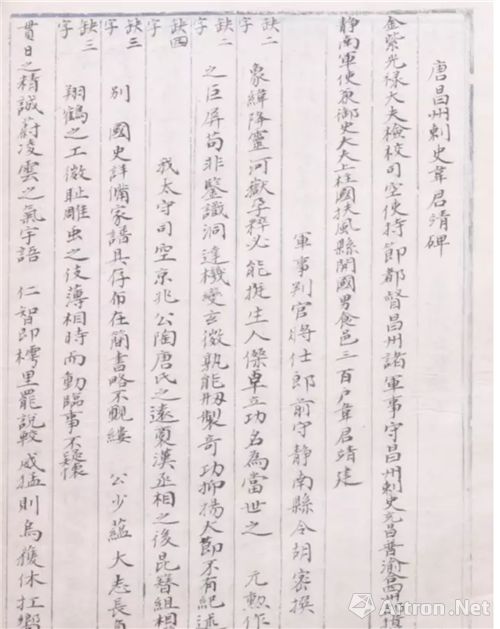 唐昌州刺史韋君靖碑
金紫光祿大夫檢校司空使持節都督昌州諸軍事守昌州刺史充昌普渝合四州
靜南軍使兼御史大夫上柱國扶風縣開國男食邑三百戶韋君靖建
軍事判官將仕郎前守靜南縣令胡密撰
缺二字
象緯降靈河嶽孕粹必能挺生人傑卓立功名為當世之 元勳作
缺二字
之巨屏苟非鑒識洞達機變玄微孰能刱製奇功抑揚大節不有紀述
缺四字
我太守司空京兆公陶唐氏之遠裔漢丞相之後昆簪組相
缺三字
別 國史詳備家譜具存布在簡書略不覼縷 公少蘊大志長
缺三字
翔鶴之工微耻雕虫之伎薄相時而動臨事不疑懷
貫日之精誠蔚凌雲之氣宇語 仁智即樗里罷說較 威猛則烏獲休扛
雅昌藝術網
Artron.Net